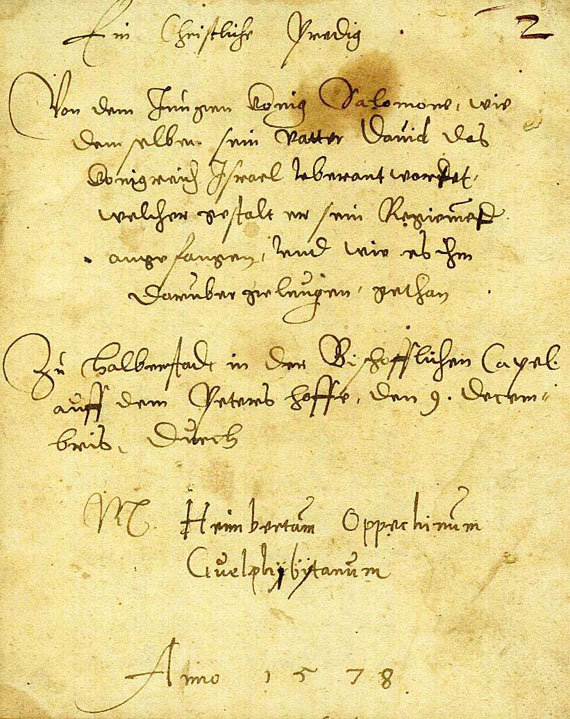 Ein Christliche Predig 2
Von dem Jungen König Salomone, wie
demselben sein Vatter Dauid das
Königreich Israel vberant wordet,
welcher gestalt er sein Regiment
angefangen, vnd wie es ihm
darüber gelungen, gethan
Zu Halberstadt in der Bischofflichen Capel
auff dem Peters hoffe, den 9. Decem-
bris, Durch
M. Heimbertum Oppechinum
Guelphybytanum
Anno 1578